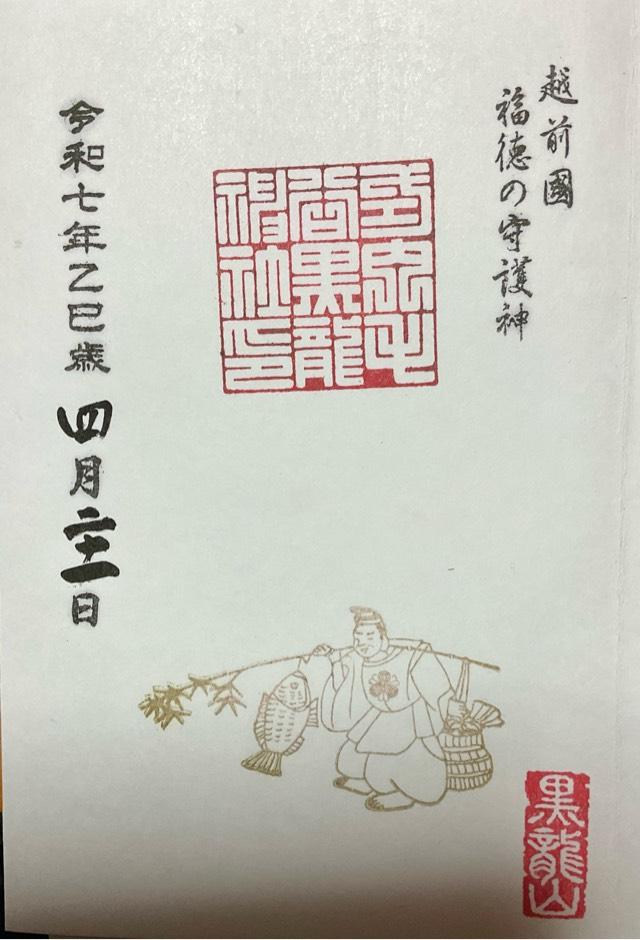 越前國
福徳の守護神
毛
谷黒龍
神社印
令和七年乙巳歳 四月二十一日
黒龍山